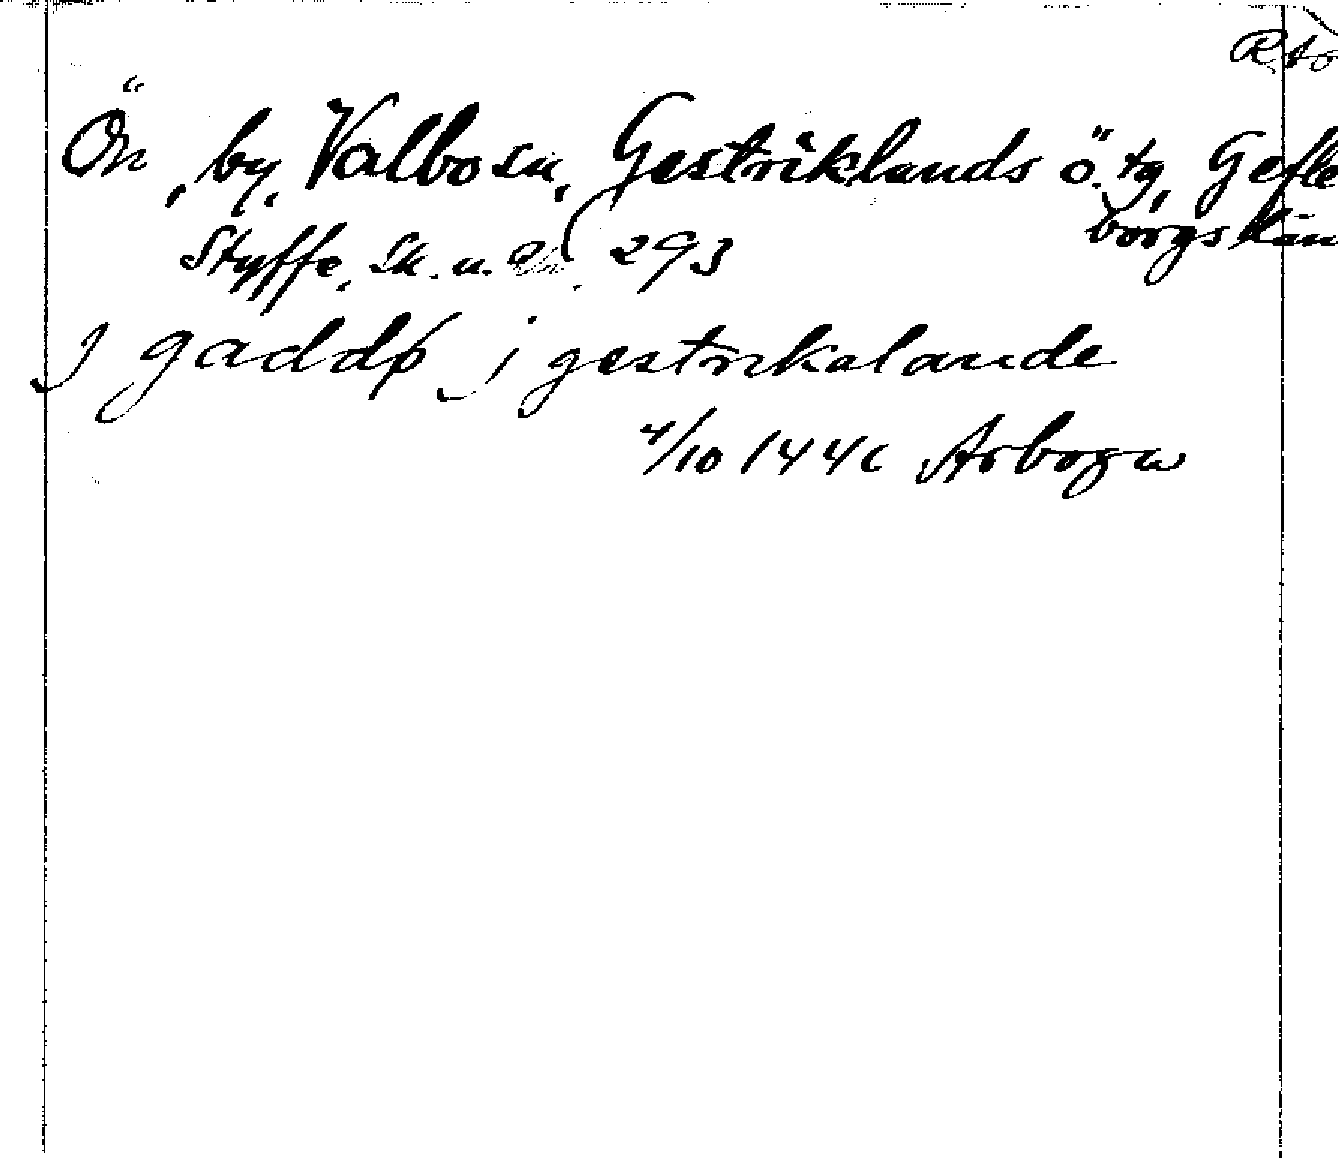 Rto
Ön, by, Valbo sn, Gestriklands ö. tg, Gefle
borgs län
Styffe, Sk. u. Un. 293
J gaddø j gestrikalande
4/10 1446 Arboga